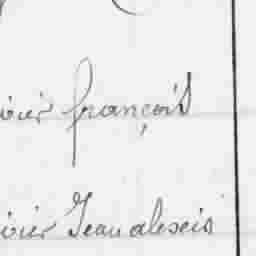 ivier françois
ivier Jean alexis